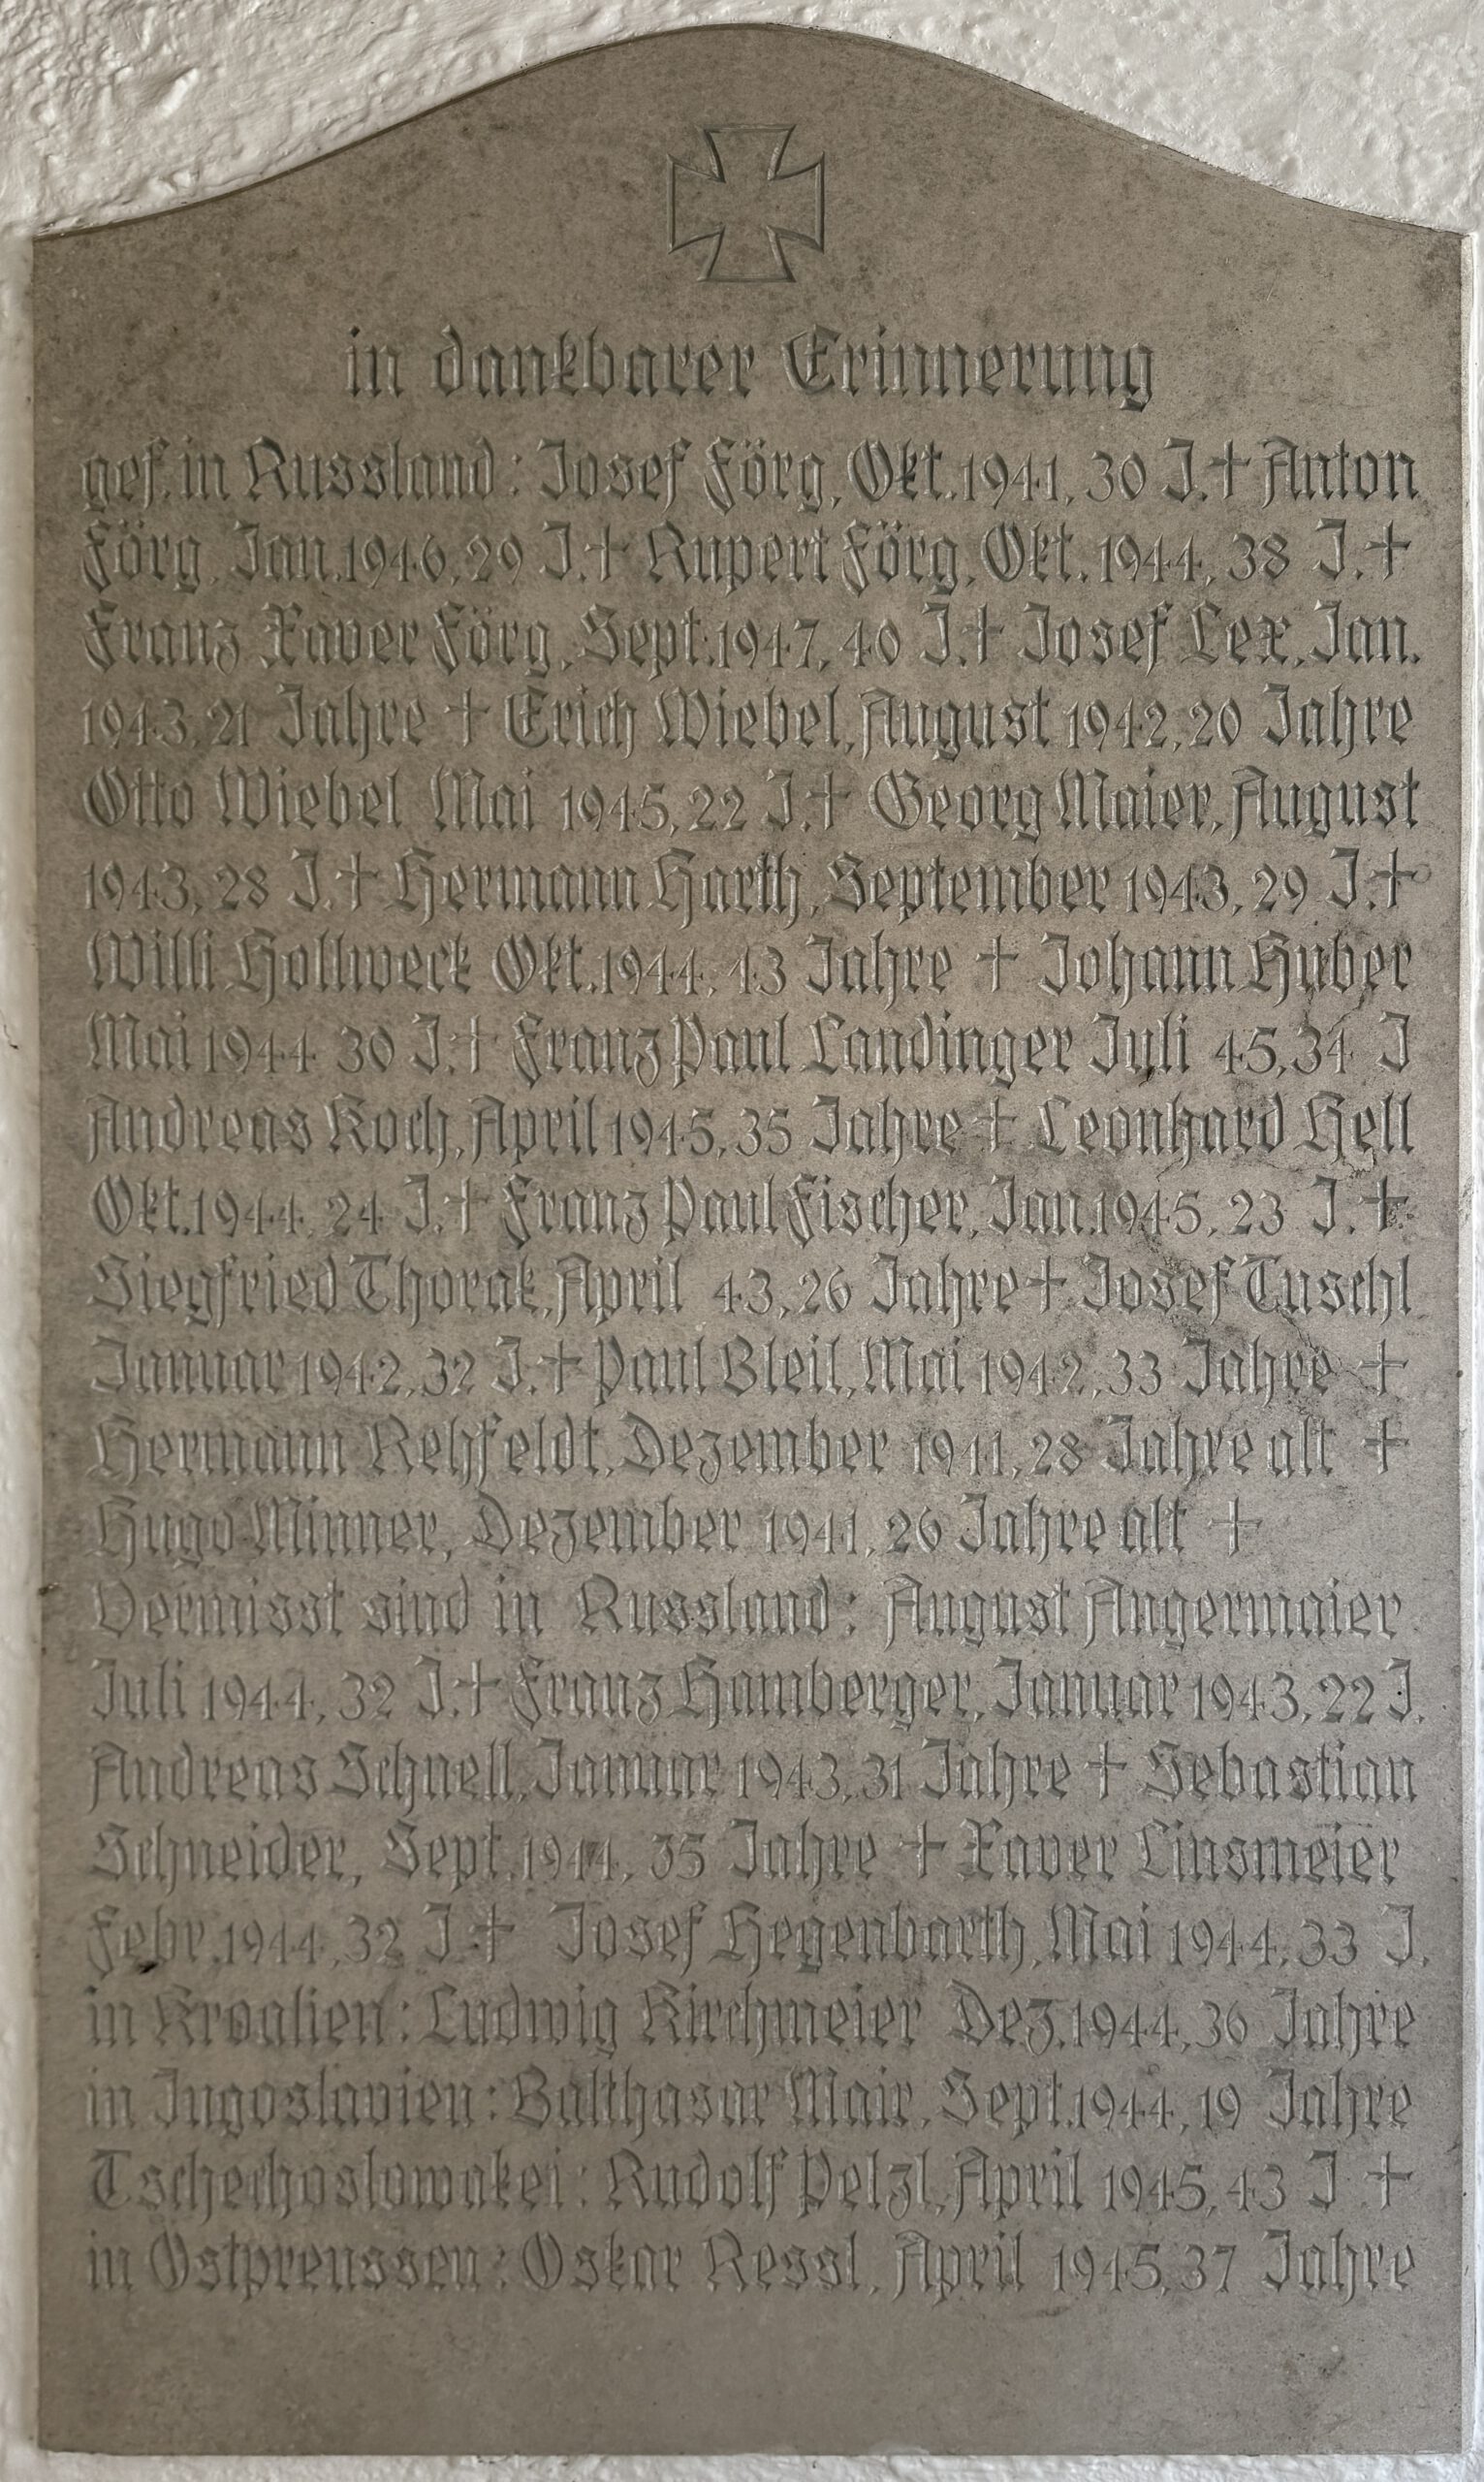 in dankbarer Erinnerung
gef. in Russland: Josef Förg, Okt. 1941, 30 J. † Anton
Förg, Jan. 1946, 29 J. † Rupert Förg, Okt. 1944, 38 J. †
Franz Xaver Förg, Sept. 1947, 40 J. † Josef Lex, Jan.
1943, 21 Jahre † Erich Wiebel, August 1942, 20 Jahre
Otto Wiebel Mai 1945, 22 J. † Georg Maier, August
1943, 28 J. † Hermann Harth, September 1943, 29 J. †
Willi Hollweck Okt. 1944, 43 Jahre † Johann Huber
Mai 1944 30 J. † Franz Paul Landinger Juli 45, 34 J
Andreas Koch, April 1945, 35 Jahre † Leonhard Hell
Okt. 1944, 24 J. † Franz Paul Fischer, Jan. 1945, 23 J. †
Siegfried Thorak, April 43, 26 Jahre † Josef Tuschl
Januar 1942, 32 J. † Paul Bleil, Mai 1942, 33 Jahre †
Hermann Rehfeldt, Dezember 1941, 28 Jahre alt †
Hugo Minner, Dezember 1941, 26 Jahre alt †
Vermisst sind in Russland: August Angermaier
Juli 1944, 32 J. † Franz Hamberger, Januar 1943, 22 J.
Andreas Schnell, Januar 1943, 31 Jahre † Sebastian
Schneider, Sept. 1944, 35 Jahre † Xaver Linsmeier
Febr. 1944, 32 J. † Josef Hegenbarth, Mai 1944, 33 J.
in Kroatien: Ludwig Kirchmeier Dez. 1944, 36 Jahre
in Jugoslavien: Balthasar Mair, Sept. 1944, 19 Jahre
Tschechoslowakei: Rudolf Pelzl, April 1945, 43 J †
in Ostpreussen: Oskar Ressl, April 1945, 37 Jahre